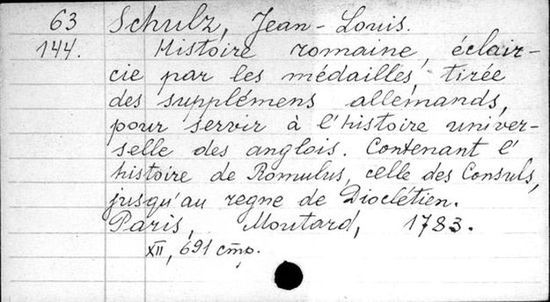 63 Schulz, Jean-Louis.
144. Histoire romaine, éclair-
cie par les médailles, tirée
des supplémens allemands,
pour servir à l'histoire univer-
selle des anglois. Contenant l'
histoire de Romulus, celle des Consuls,
jusqu'au regne de Dioclétien.
Paris, Moutard, 1783.
XII, 691 cmp.